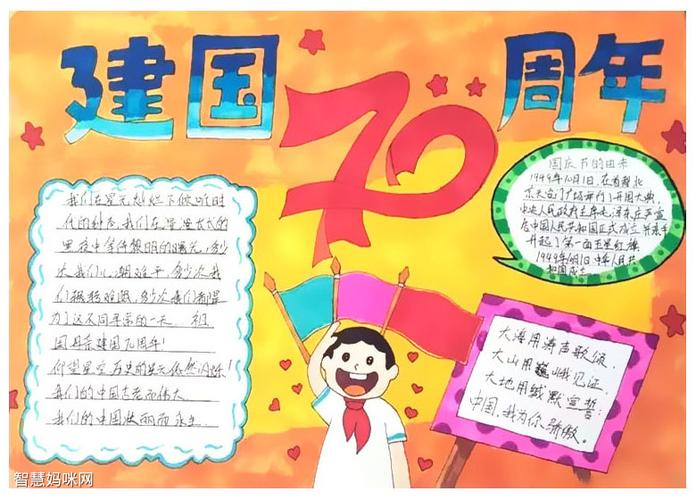 建国70周年
我们在星光灿烂下倾听时
代的钟声,我们在漫漫长长的
黑夜中等待黎明的曙光,多少
次我们心潮难平,多少次我
们
多少次我们都是
为了这不同寻常的一天。祖
国母亲建国70周年!
仰望星空历史的星光依然闪烁!
我们的中国古老而伟大
我们的中国壮丽而永生
国庆节的由来
1949年10月1日,在首都北
京天安门广场举行了开国大典
中央人民政府主席毛泽东庄严宣
告中国人民共和国正式成立并亲手
升起了第一面五星红旗
1949年10月1日中华人民共
和国成立
大海用涛声歌颂,
大山用巍峨见证,
大地用缄默宣誓:
中国,我为你骄傲。
智慧妈咪网